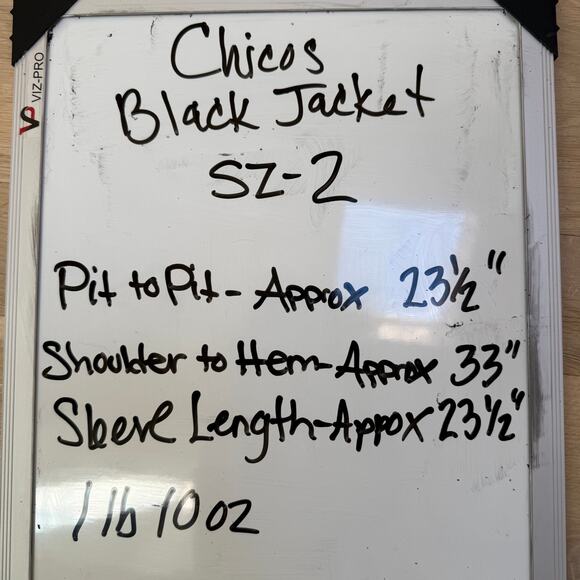 VIZ-PRO
Chicos
Black Jacket
SZ-2
Pit to Pit - Approx 23 1/2"
Shoulder to Hem - Approx 33"
Sleeve Length - Appox 23 1/2"
1 lb 10 oz